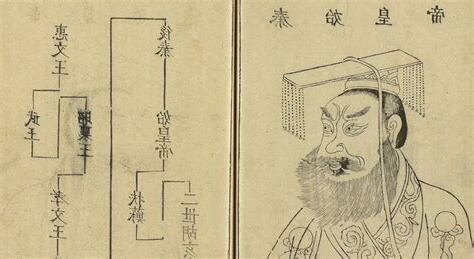 惠文王
武王
昭襄王
孝文王
後秦
始皇帝
扶蘇
二世胡亥
秦始皇帝